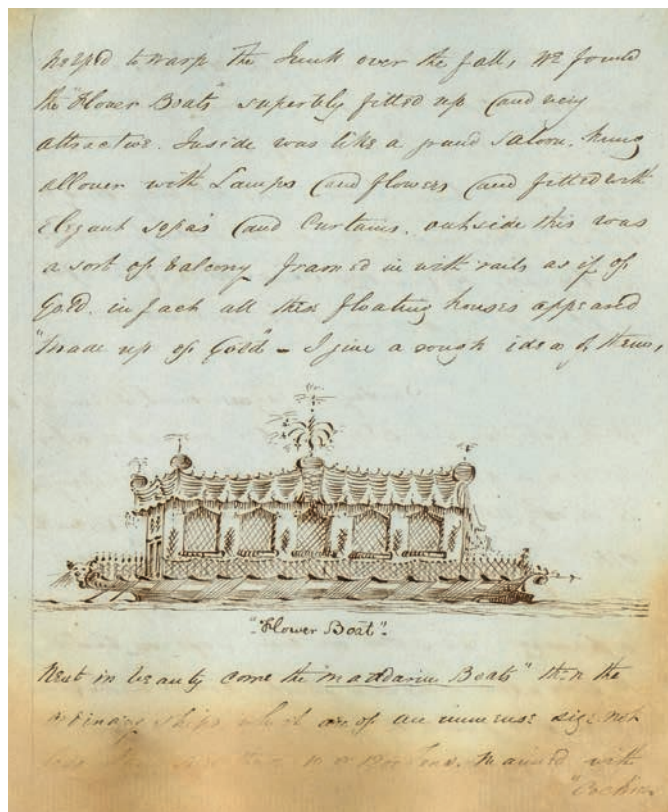 helpd to warp the Junk over the fall, we found
the "Flower Boats" superbly fitted up and very
attractive. Inside was like a grand saloon, hung
allover with Lamps and flowers and fitted with
elegant sofas and Curtains. outside this was
a sort of balcony framed in with rails as if of
Gold. in fact all these floating houses appeared
"made up of Gold" - I give a rough idea of them,
"Flower Boat".
Next in beauty come the "mandarin Boats" then the
ordinary ships which are of an immense size not
less than 10 or 1200 tons. manned with
"Cochin